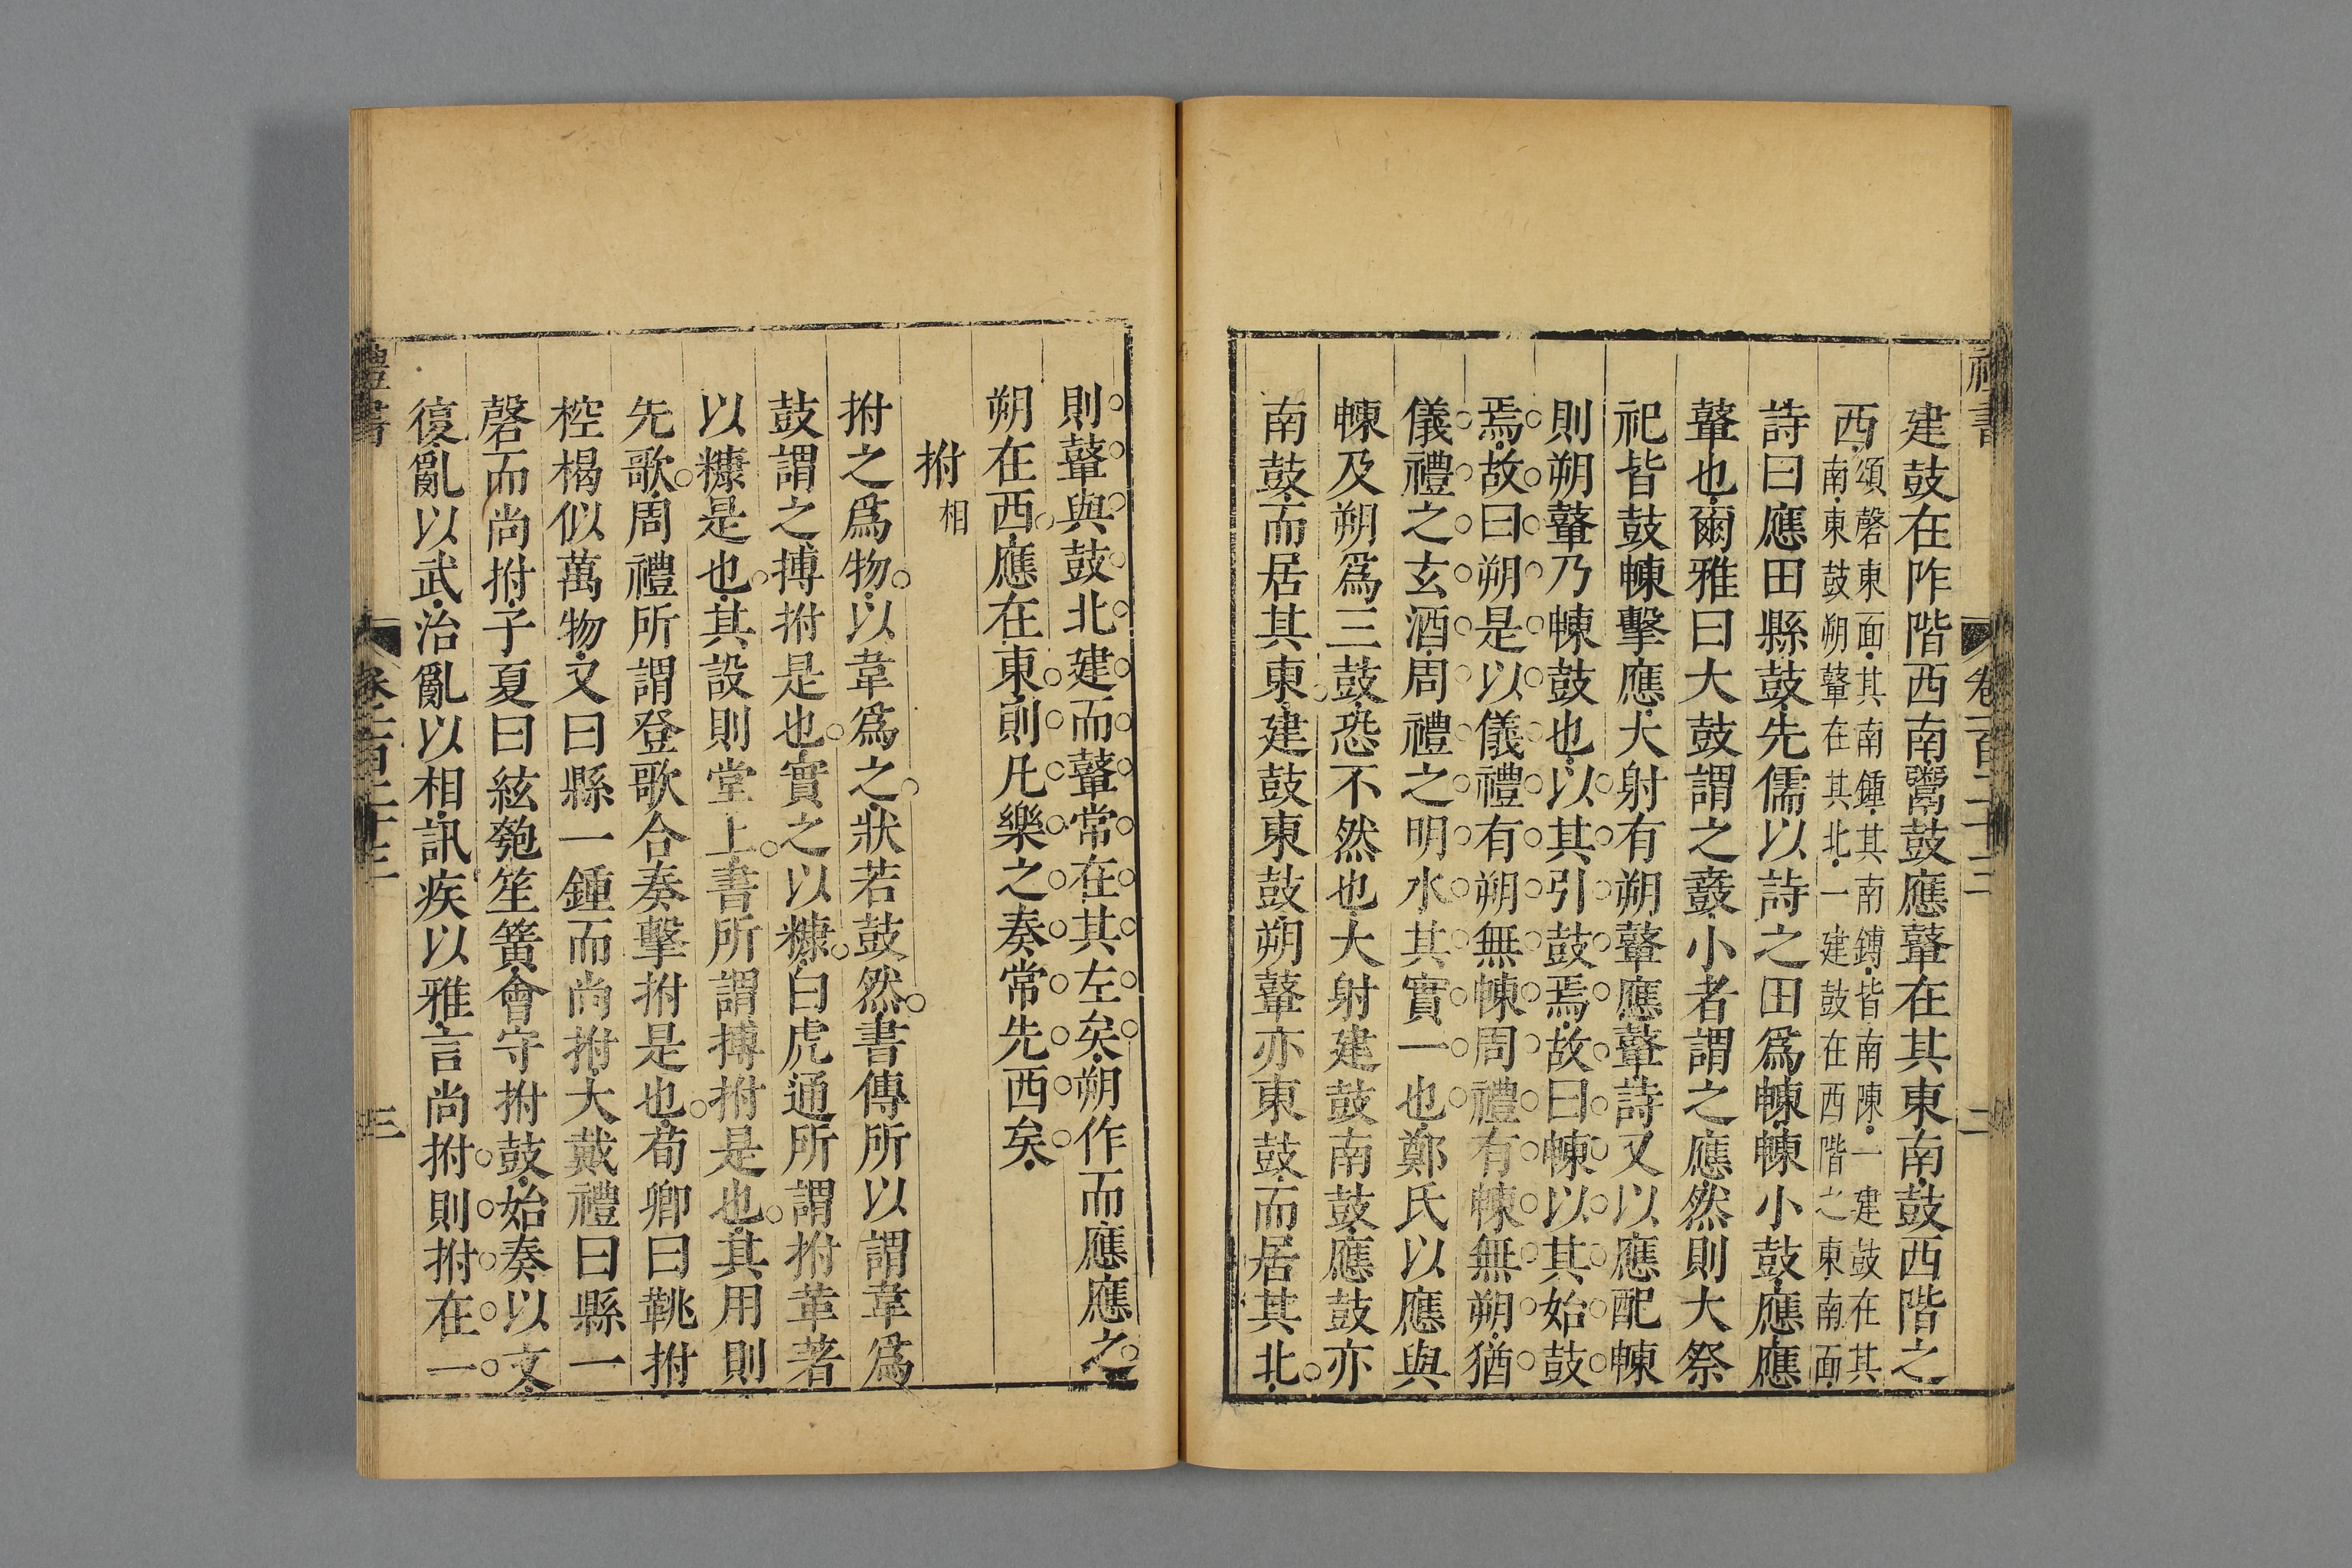 建鼓在阼階西南鬻鼓應鼙在其東南鼓西階之
西頌磬東面其南鍾其南鎛皆南陳一建鼓在其
南東鼓朔鼙在其北一建鼓在西階之東南面
詩曰應田縣鼓先儒以詩之田爲㯥㯥小鼓應應
鼙也爾雅曰大鼓謂之鼖小者謂之應然則大祭
祀皆鼓㯥擊應大射有朔鼙應鼙詩又以應配㯥
則朔鼙乃㯥鼓也以其引鼓焉故曰㯥以其始鼓
焉故曰朔是以儀禮有朔無㯥周禮有㯥無朔猶
儀禮之玄酒周禮之明水其實一也鄭氏以應與
㯥及朔爲三鼓恐不然也大射建鼓南鼓應鼓亦
南鼓而居其東建鼓東鼓朔鼙亦東鼓而居其北
則鼙與鼓北建而鼙常在其左矣朔作而應應之
朔在西應在東則凡樂之奏常先西矣
拊相
拊之爲物以韋爲之狀若鼓然書傳所以謂韋爲
鼓謂之搏拊是也實之以糠白虎通所謂拊革著
以糠是也其設則堂上書所謂搏拊是也其用則
先歌周禮所謂登歌合奏擊拊是也荀卿曰鞉拊
椌楬似萬物又曰縣一鍾而尚拊大戴禮曰縣一
磬而尚拊子夏曰絃匏笙簧會守拊鼓始奏以文
復亂以武治亂以相訊疾以雅言尚拊則拊在一
禮書
三